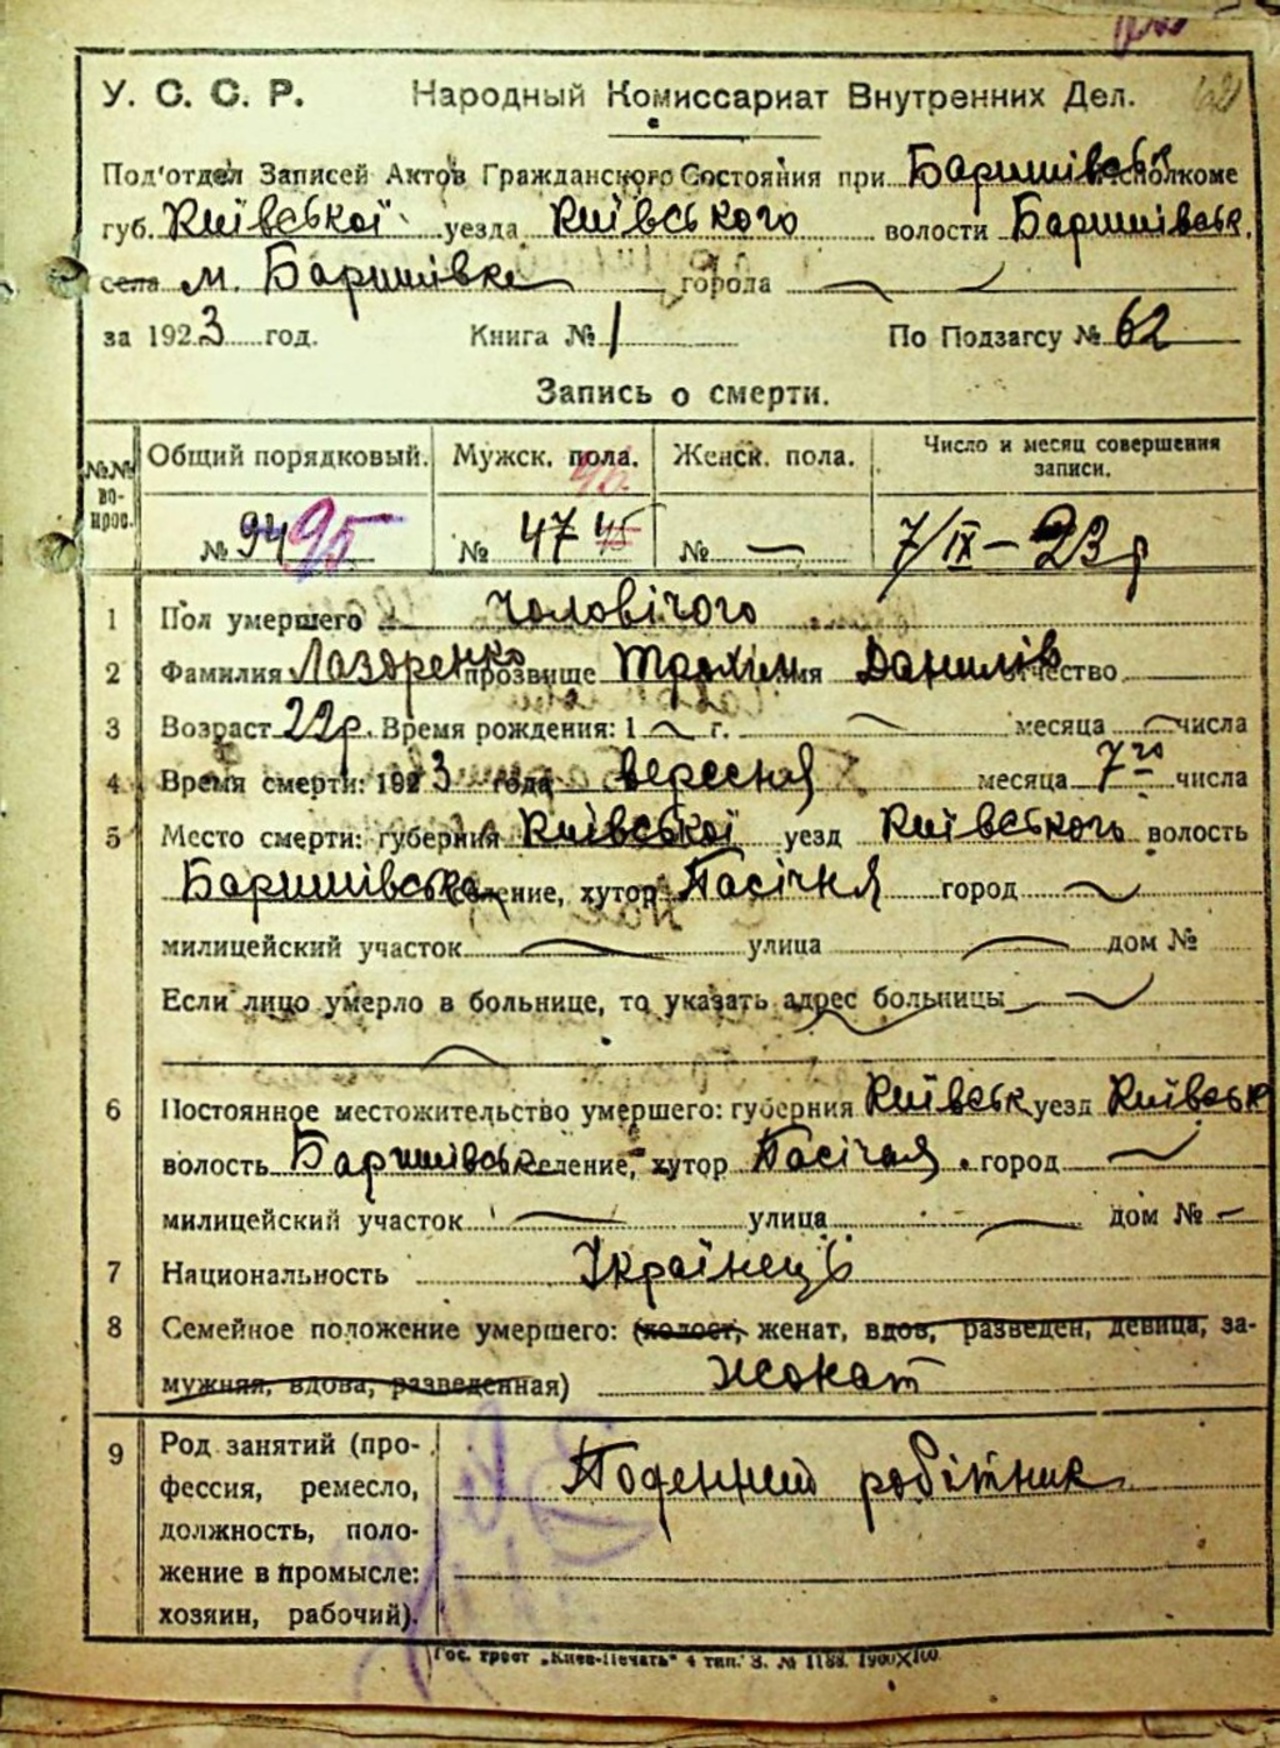 У. С. С. Р. Народный Комиссариат Внутренних Дел.
Под'отдел Записей Актов Гражданского Состояния при Баришівськ Исполкоме
губ. Київської уезда Київського волости Баришівськ.
села м. Баришівка города
за 1923 год. Книга № 1 По Подзагсу № 62
Запись о смерти.
№№ вопрос. Общий порядковый. Мужск. пола. Женск. пола. Число и месяц совершения записи.
№ 94 95 № 47 45 № — 7/IX – 23 р
1 Пол умершего чоловічого
2 Фамилия Лазаренко прозвище Трохим имя Данилів отчество
3 Возраст 22 р. Время рождения: 1 г. месяца числа
4 Время смерти: 1923 года вересня месяца 7го числа
5 Место смерти: губерния Київської уезд Київського волость
Баришівська селение, хутор Пасічня город
милицейский участок улица дом №
Если лицо умерло в больнице, то указать адрес больницы
6 Постоянное местожительство умершего: губерния Київськ уезд Київськ
волость Баришівськ селение, хутор Пасічня город
милицейский участок улица дом № –
7 Национальность Українець
8 Семейное положение умершего: (холост, женат, вдов, разведен, девица, за-
мужняя, вдова, разведенная) жонат
9 Род занятий (про-
фессия, ремесло, Поденний робітник
должность, поло-
жение в промысле:
хозяин, рабочий).
Гос. трест „Киев-Печать" 4 тип. З. № 1188. 1900X100